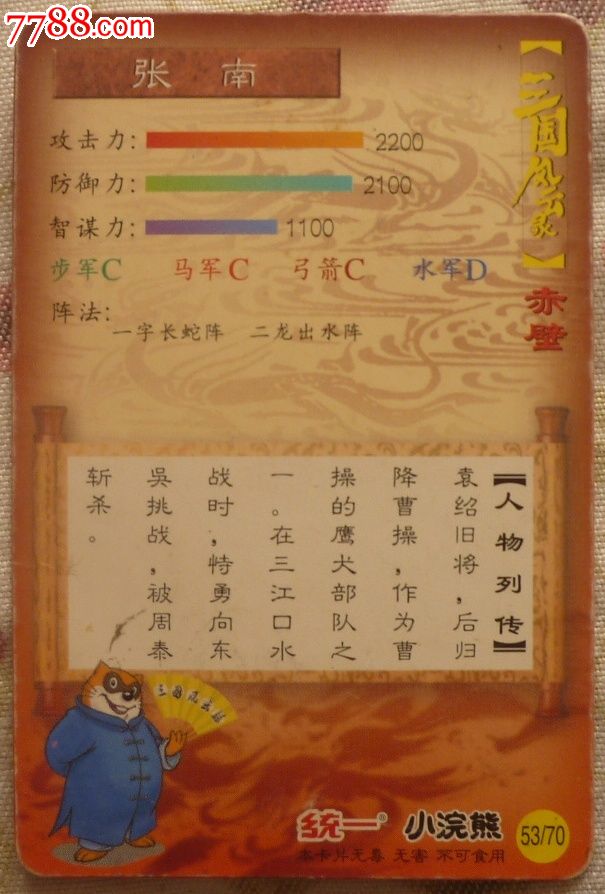 7788.com
张 南
【三国风云录】
赤壁
攻击力: 2200
防御力: 2100
智谋力: 1100
步军C 马军C 弓箭C 水军D
阵法:
一字长蛇阵 二龙出水阵
【人物列传】
袁绍旧将,后归
降曹操,作为曹
操的鹰犬部队之
一。在三江口水
战时,恃勇向东
吳挑战,被周泰
斩杀。
三国风云录
统一® 小浣熊
53/70
本卡片无毒 无害 不可食用